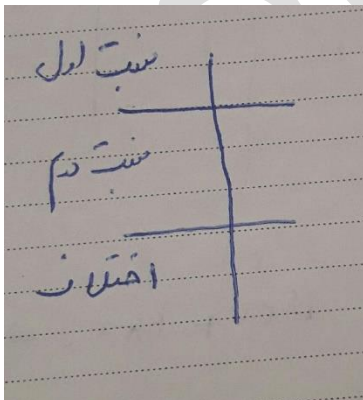 نسبت اول
نسبت دوم
اختلاف